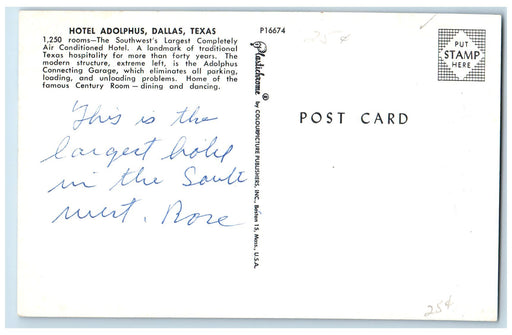 HOTEL ADOLPHUS, DALLAS, TEXAS
1,250 rooms—The Southwest's Largest Completely
Air Conditioned Hotel. A landmark of traditional
Texas hospitality for more than forty years. The
modern structure, extreme left, is the Adolphus
Connecting Garage, which eliminates all parking,
loading, and unloading problems. Home of the
famous Century Room — dining and dancing.
This is the
largest hotel
in the South
west. Rose
P16674
Plastichrome ® by COLOURPICTURE PUBLISHERS, INC., Boston 15, Mass., U.S.A.
25¢
PUT
STAMP
HERE
POST CARD
25¢